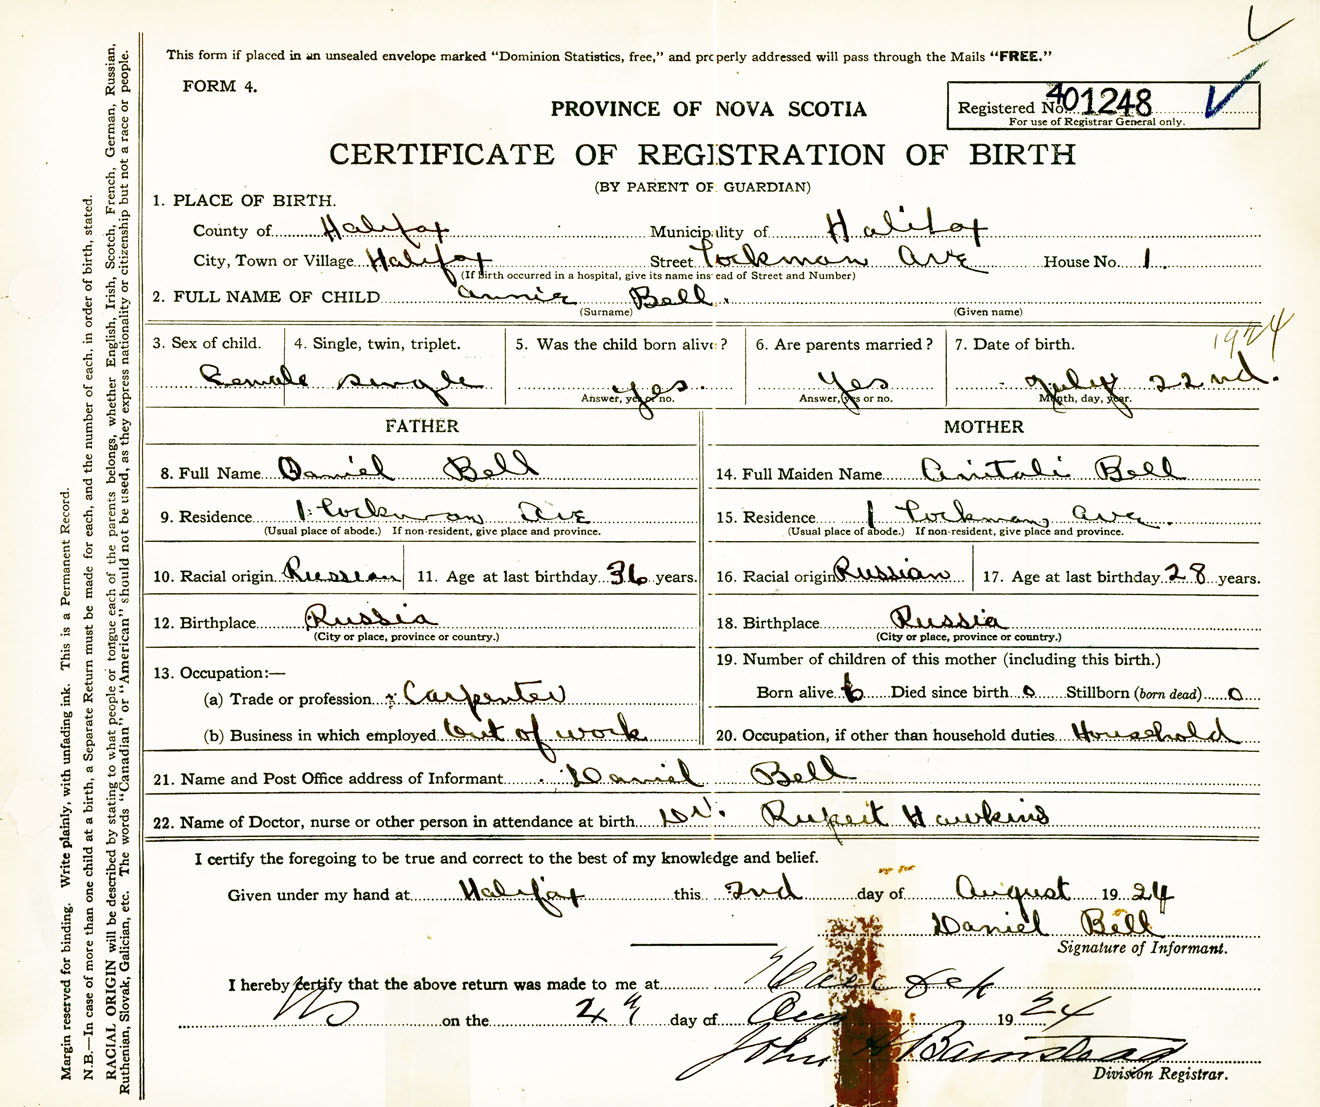 This form if placed in an unsealed envelope marked “Dominion Statistics, free,” and properly addressed will pass through the Mails “FREE.”
FORM 4.
PROVINCE OF NOVA SCOTIA
Registered No. 401248
For use of Registrar General only.
CERTIFICATE OF REGISTRATION OF BIRTH
(BY PARENT OR GUARDIAN)
1. PLACE OF BIRTH.
County of Halifax Municipality of Halifax
City, Town or Village Halifax Street Lockman Ave House No. 1.
(If Birth occurred in a hospital, give its name instead of Street and Number)
2. FULL NAME OF CHILD Annie Bell.
(Surname) (Given name)
3. Sex of child. 4. Single, twin, triplet. 5. Was the child born alive? 6. Are parents married? 7. Date of birth. 1924
Female single yes. Yes July 22nd.
Answer, yes or no. Answer, yes or no. Month, day, year.
FATHER MOTHER
8. Full Name Daniel Bell 14. Full Maiden Name Anitali Bell
9. Residence 1 Lockman Ave 15. Residence 1 Lockman Ave.
(Usual place of abode.) If non-resident, give place and province. (Usual place of abode.) If non-resident, give place and province.
10. Racial origin Russian 11. Age at last birthday 36 years. 16. Racial origin Russian 17. Age at last birthday 28 years.
12. Birthplace Russia 18. Birthplace Russia
(City or place, province or country.) (City or place, province or country.)
13. Occupation:— 19. Number of children of this mother (including this birth.)
(a) Trade or profession Carpenter Born alive 6 Died since birth 0 Stillborn (born dead) 0
(b) Business in which employed Out of work 20. Occupation, if other than household duties Household
21. Name and Post Office address of Informant Daniel Bell
22. Name of Doctor, nurse or other person in attendance at birth Dr. Rupert Hawkins
I certify the foregoing to be true and correct to the best of my knowledge and belief.
Given under my hand at Halifax this 2nd day of August 1924
Daniel Bell
Signature of Informant.
I hereby certify that the above return was made to me at
on the day of Aug 1924
John Barnstead
Division Registrar.
Margin reserved for binding. Write plainly, with unfading ink. This is a Permanent Record.
N.B.—In case of more than one child at a birth, a Separate Return must be made for each, and the number of each, in order of birth, stated.
RACIAL ORIGIN will be described by stating to what people or tongue each of the parents belongs, whether English, Irish, Scotch, French, German, Russian,
Ruthenian, Slovak, Galician, etc. The words “Canadian” or “American” should not be used, as they express nationality or citizenship but not a race or people.